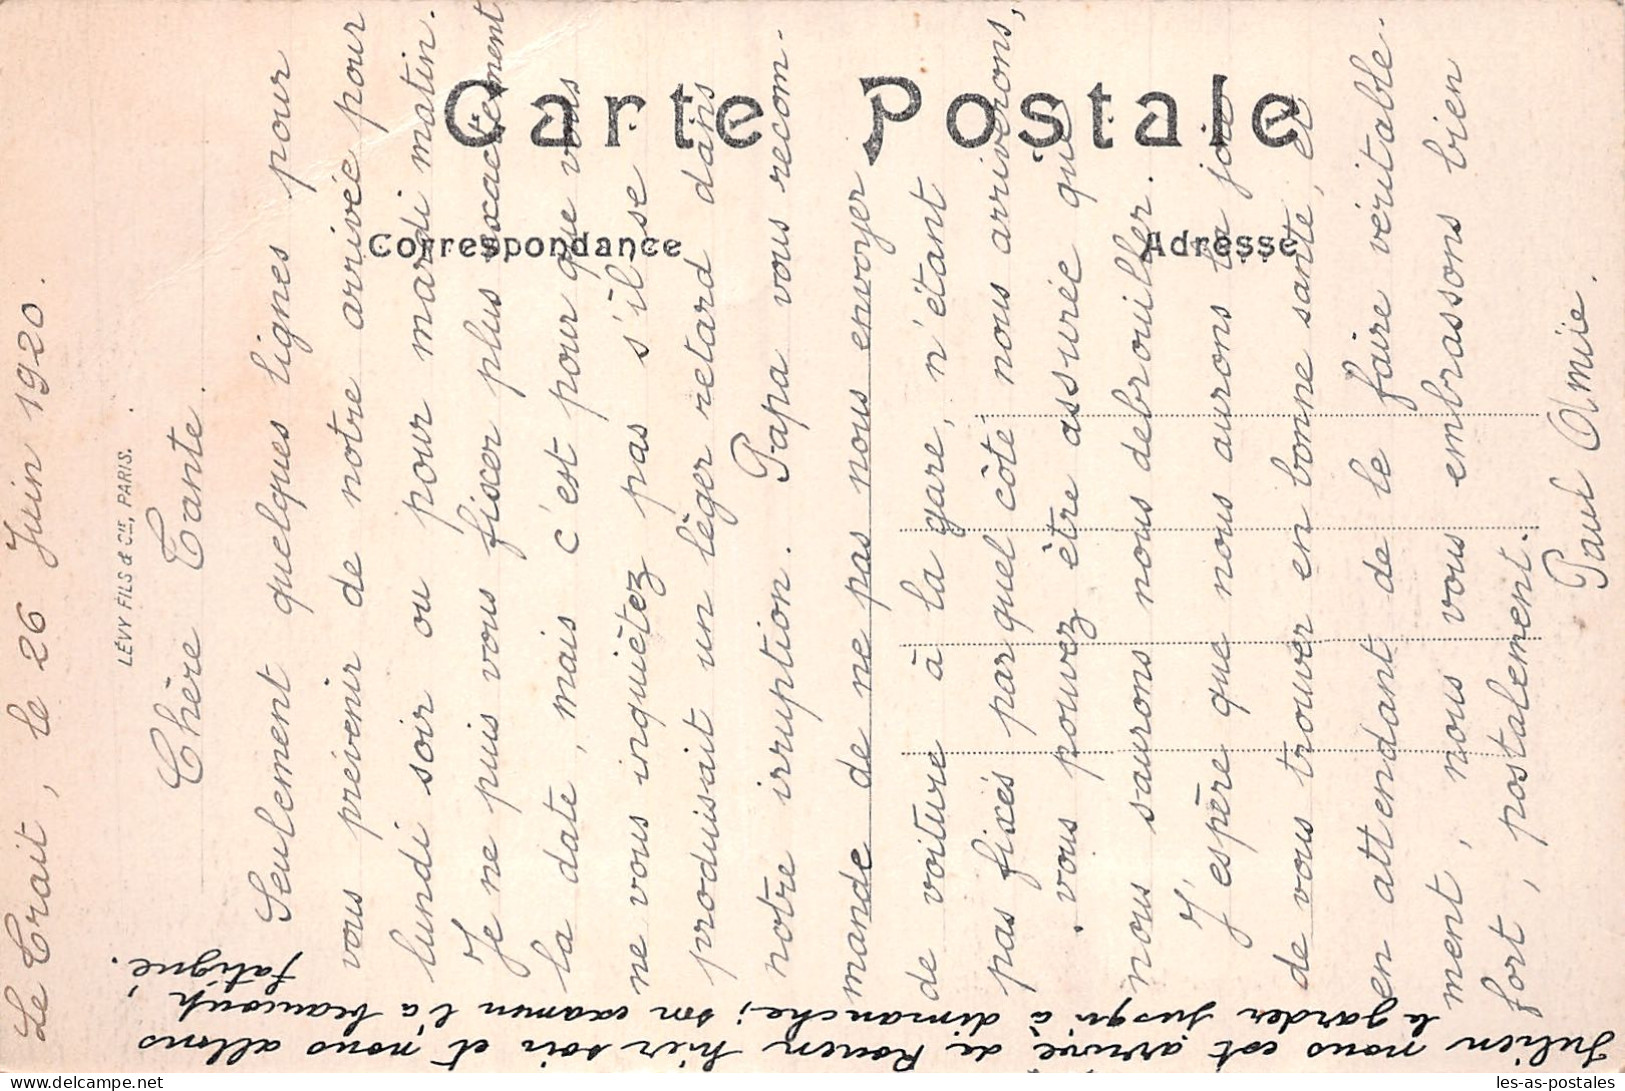 Carte Postale
Correspondance
Adresse
LÉVY FILS & CIE, PARIS.
Le Trait, le 26 Juin 1920.
Chère Tante.
Seulement quelques lignes pour
vous prévenir de notre arrivée pour
lundi soir ou pour mardi matin.
Je ne puis vous fixer plus exactement
la date, mais c'est pour que vous
ne vous inquiètez pas s'il se
produisait un lèger retard dans
notre irruption. Papa vous recom-
mande de ne pas nous envoyer
de voiture à la gare, n'étant
pas fixés par quel côté nous arriverons,
vous pouvez être assurée que
nous saurons nous debrouiller.
J'espère que nous aurons la joie
de vous trouver en bonne santé, et
en attendant de le faire véritable-
ment, nous vous embrassons bien
fort, postalement.
Paul Aimie.
Julien nous est arrivé de Rouen hier soir et nous allons
le garder jusqu'à dimanche; son examen l'a beaucoup
fatigué.
les-as-postales